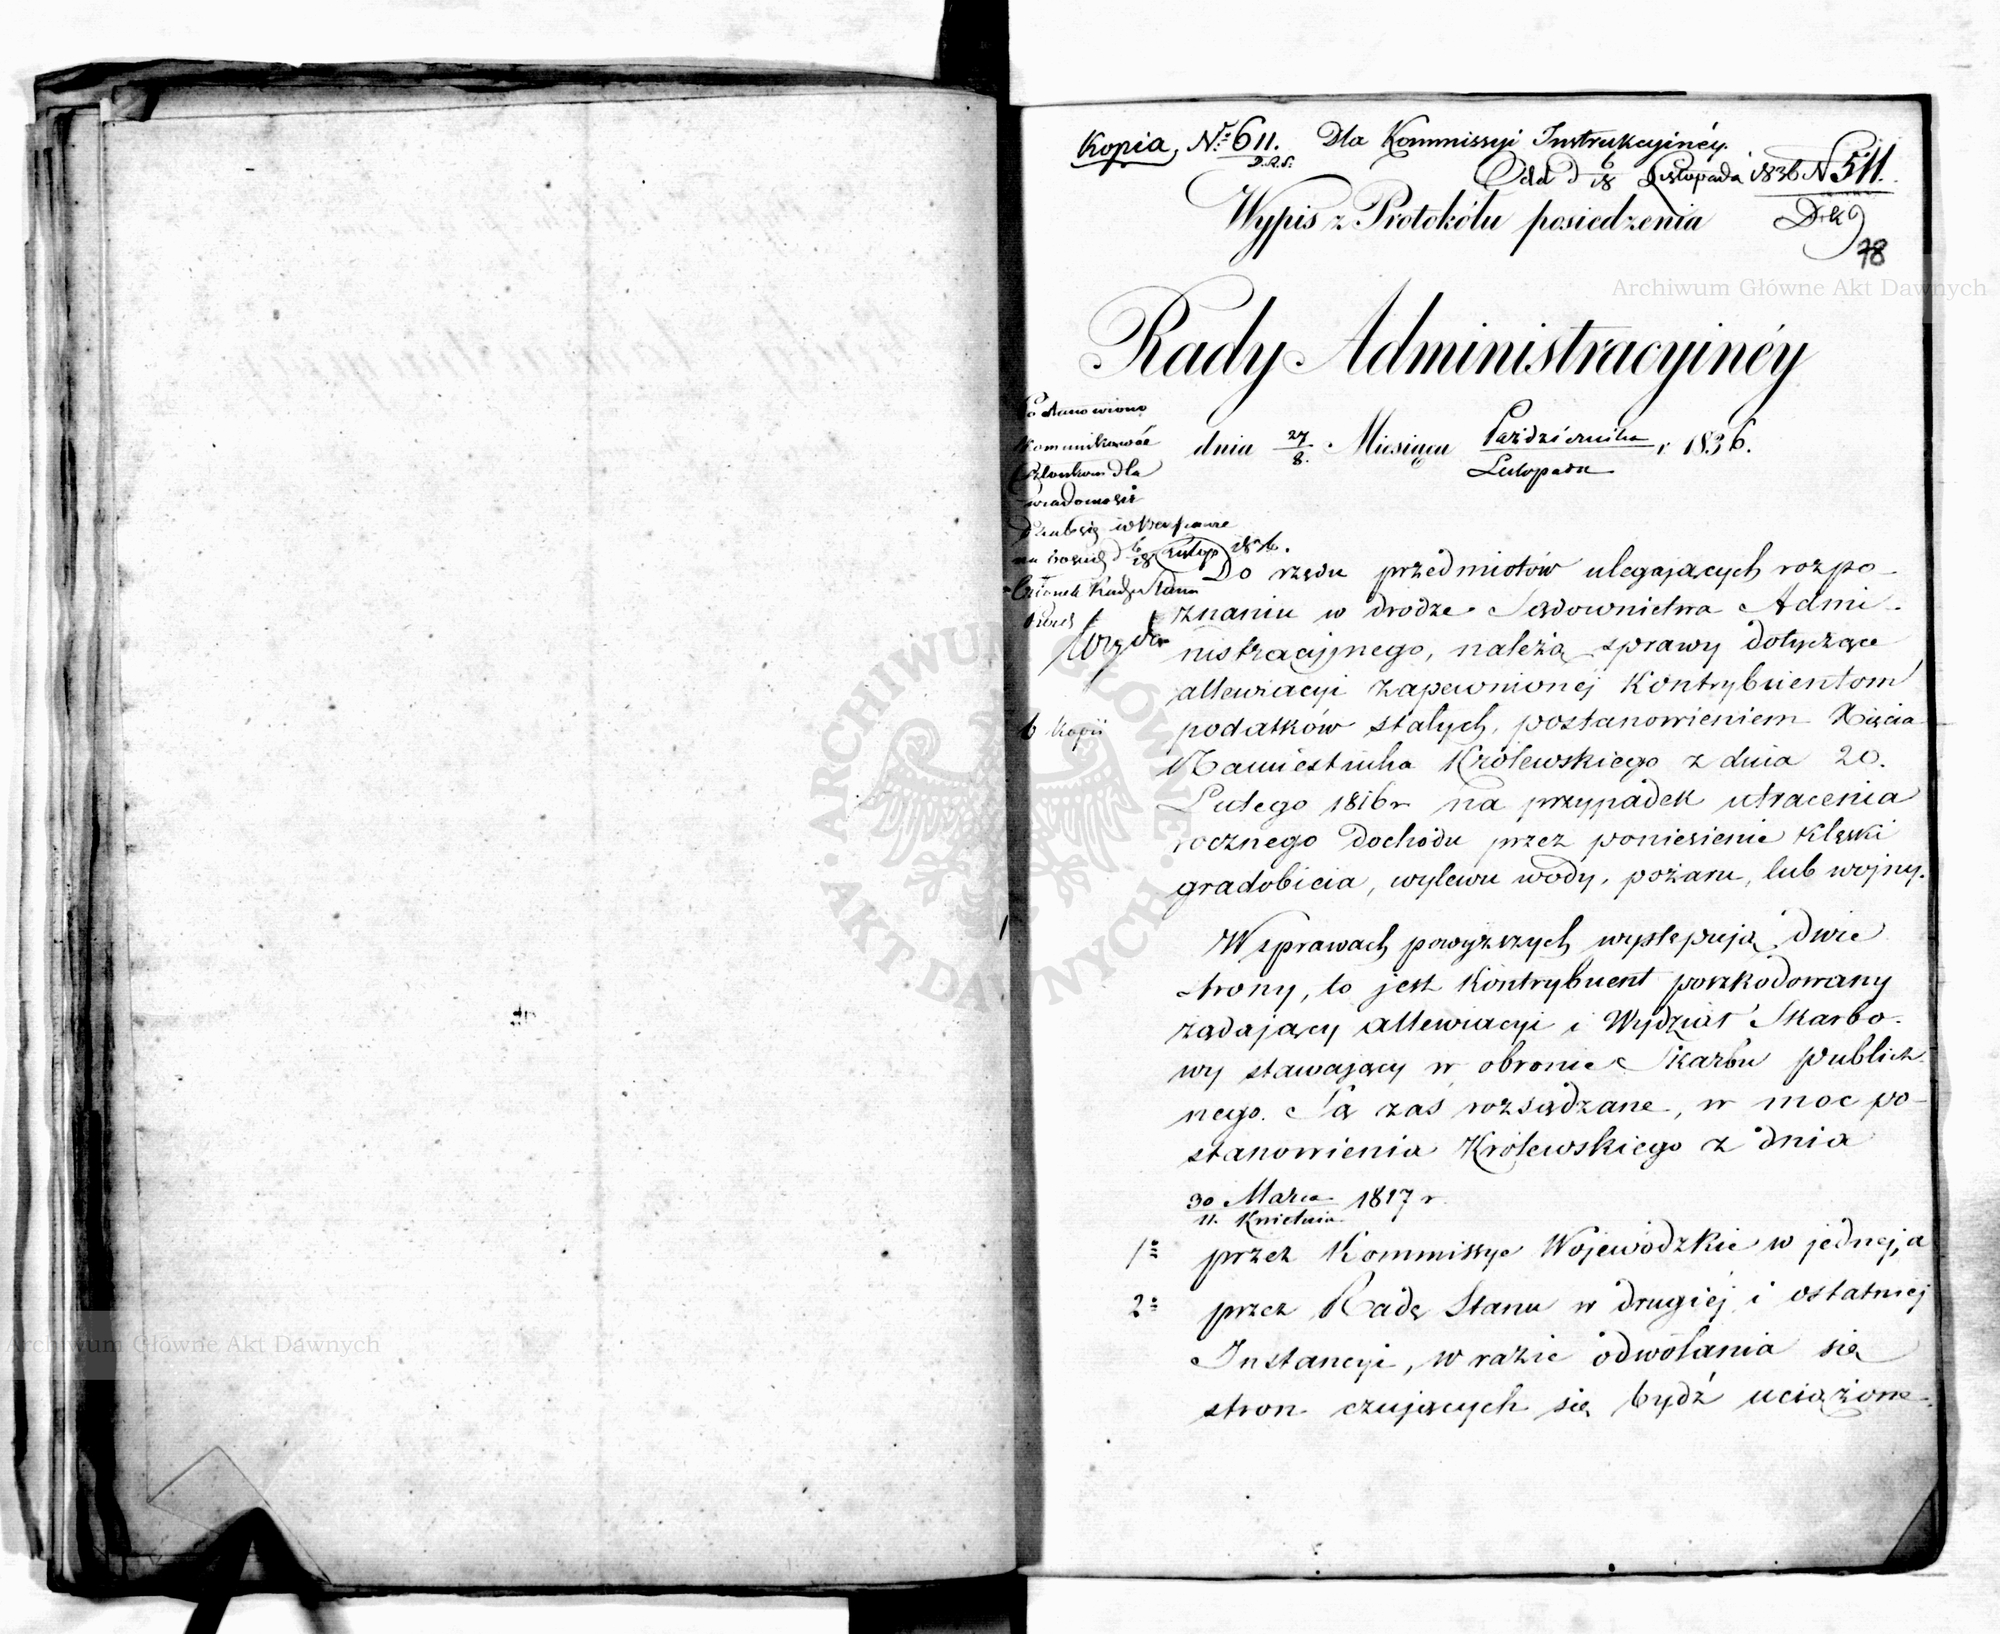 Kopia, Nr 611. Dla Kommissyi Instrukcyinéy.
D.A.S.
Odd d 6/18 Listopada 1836 N 511.
Wypis z Protokółu posiedzenia
78
Rady Administracyinéy
dnia 27/8. Miesiąca Października/Listopada r. 1836.
Postanowiono
kommunikować
Członkom dla
wiadomości
Działo się w Warszawie
na sessyi d 6/18 Listop 1836.
Członek Rady Stanu
6 kopii
Do rzędu przedmiotów ulegających rozpo-
znaniu w drodze Sądownictwa Admi-
nistracyjnego, należą sprawy dotyczące
allewiacyi zapewnionej Kontrybuentom
podatków stałych, postanowieniem Xięcia
Namiestnika Królewskiego z dnia 20.
Lutego 1816 r na przypadek utracenia
rocznego dochodu przez poniesienie klęski
gradobicia, wylewu wody, pożaru, lub wojny.
W sprawach powyższych występują dwie
strony, to jest Kontrybuent poszkodowany
żądający allewiacyi i Wydział Skarbo-
wy stawający w obronie Skarbu publicz-
nego. Są zaś rozsądzane, w moc po-
stanowienia Królewskiego z dnia
30 Marca/11. Kwietnia 1817 r.
1o przez Kommissye Wojewódzkie w jednej, a
2o przez Radę Stanu w drugiej i ostatniej
Instancyi, w razie odwołania się
stron czujących się bydź uciążone-
Archiwum Główne Akt Dawnych
Archiwum Główne Akt Dawnych
ARCHIWUM GŁÓWNE · AKT DAWNYCH ·